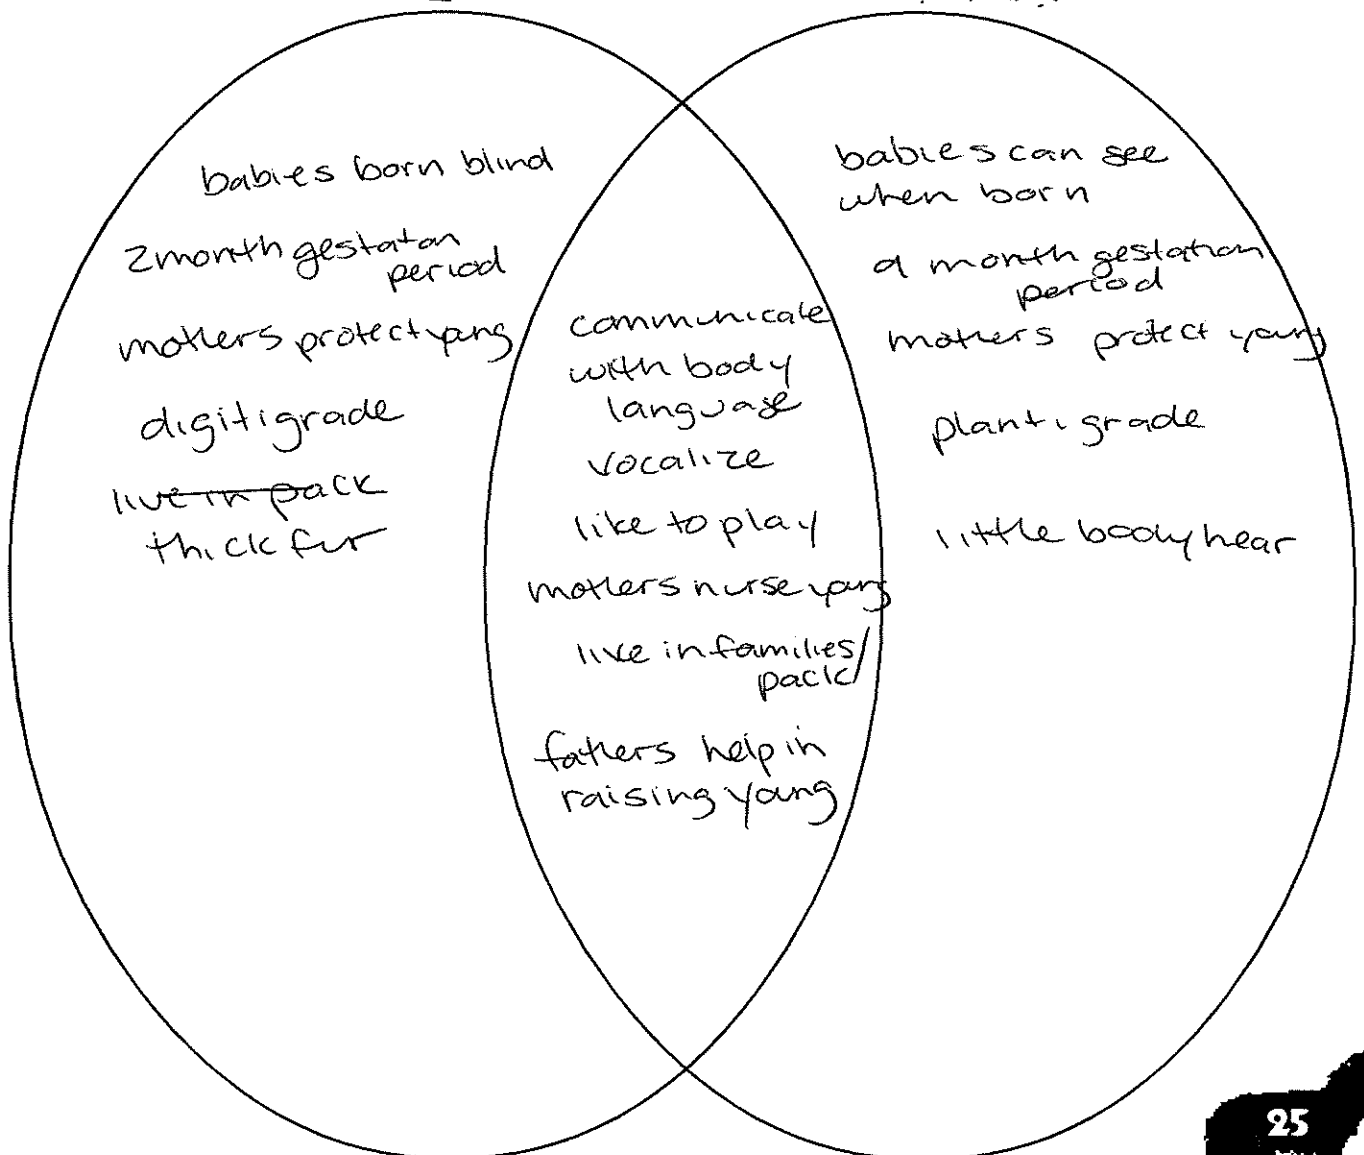 babies born blind
2month gestaton
period
mothers protect young
digitigrade
live in pack
thick fur
communicate
with body
language
vocalize
like to play
mothers nurse young
live in families/
pack
fathers help in
raising young
babies can see
when born
a month gestation
period
mothers protect young
plantigrade
little body hear
25